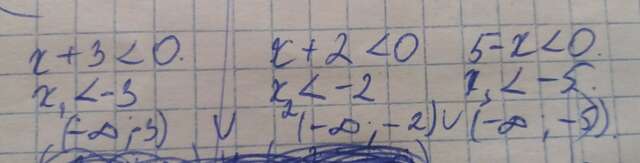 x+3<0. x+2<0 5-x<0.
x₁<-3 x₂<-2 x₃<-5.
(-∞;-3) ∪ (-∞;-2) ∪ (-∞;-5)